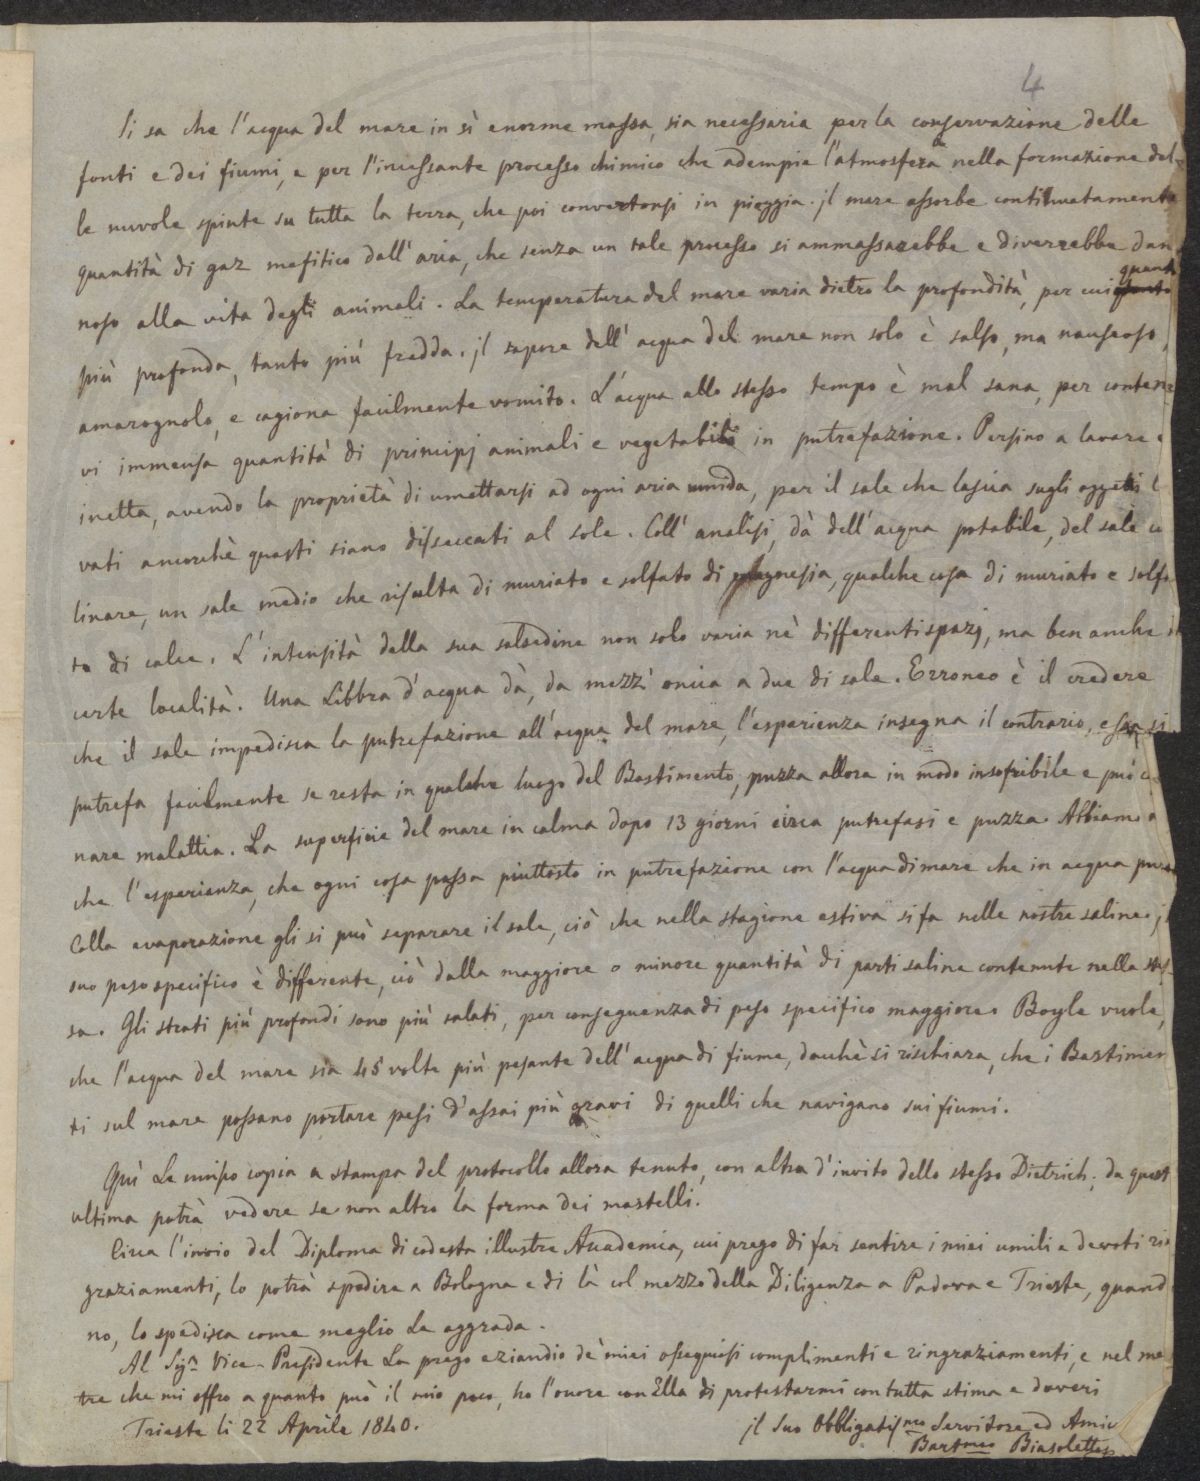 4
Si sa che l'acqua del mare in sì enorme massa, sia necessaria per la conservazione delle
fonti e dei fiumi, e per l'incessante processo chimico che adempie l'atmosfera nella formazione del-
le nuvole spinte su tutta la terra, che poi convertonsi in pioggia. il mare assorbe continuatamente
quantità di gaz mefitico dall'aria, che senza un tale processo si ammassarebbe e diverrebbe dan
noso alla vita degli animali. La temperatura del mare varia dietro la profondità, per cui quanto
più profonda, tanto più fredda. il sapore dell'acqua del mare non solo è salso, ma nauseoso,
amarognolo, e cagiona facilmente vomito. L'acqua allo stesso tempo è mal sana, per contener
vi immensa quantità di principj animali e vegetabili in putrefazione. Persino a lavare è
inetta, avendo la proprietà di umettarsi ad ogni aria umida, per il sale che lascia sugli oggetti l
vati ancorchè questi siano disseccati al sole. Coll'analisi, dà dell'acqua potabile, del sale cu
linare, un sale medio che risulta di muriato e solfato di magnesia, qualche cosa di muriato e solfa
to di calce. L'intensità della sua salsedine non solo varia nè differenti spazj, ma ben anche in
certe località. Una Libbra d'acqua dà, da mezz' oncia a due di sale. Erroneo è il credere
che il sale impedisca la putrefazione all'acqua del mare, l'esperienza insegna il contrario, essa si
putrefa facilmente se resta in qualche luogo del Bastimento, puzza allora in modo insofribile e può
nare malattia. La superficie del mare in calma dopo 13 giorni circa putrefasi e puzza. Abbiamo a
che l'esperienza, che ogni cosa passa piuttosto in putrefazione con l'acqua di mare che in acqua pura
Colla evaporazione gli si può separare il sale, ciò che nella stagione estiva si fa nelle nostre saline. il
suo peso specifico è differente, ciò dalla maggiore o minore quantità di parti saline contenute nella stes
sa. Gli strati più profondi sono più salati, per conseguenza di peso specifico maggiore. Boyle vuole,
che l'acqua del mare sia 45 volte più pesante dell'acqua di fiume, dacchè si rischiara, che i Bastimen
ti sul mare possano portare pesi d'assai più gravi di quelli che navigano sui fiumi.
Quì Le unisco copia a stampa del protocollo allora tenuto, con altra d'invito dello stesso Dietrich; da quest
ultima potrà vedere se non altro la forma dei mastelli.
Circa l'invio del Diploma di codesta illustre Academia, cui prego di far sentire i miei umili e devoti rin
graziamenti, lo potrà spedire a Bologna e di là col mezzo della Diligenza a Padova e Trieste, quand
no, lo spedisca come meglio Le aggrada.
Al Sigr. Vice-Presidente La prego eziandio de' miei ossequiosi complimenti e ringraziamenti, e nel me
tre che mi offro a quanto può il mio poco, ho l'onore con Ella di protestarmi con tutta stima e doveri
Trieste li 22 Aprile 1840.
il Suo Obbligatismo Servitore ed Amic
Bartmeo Biasoletto